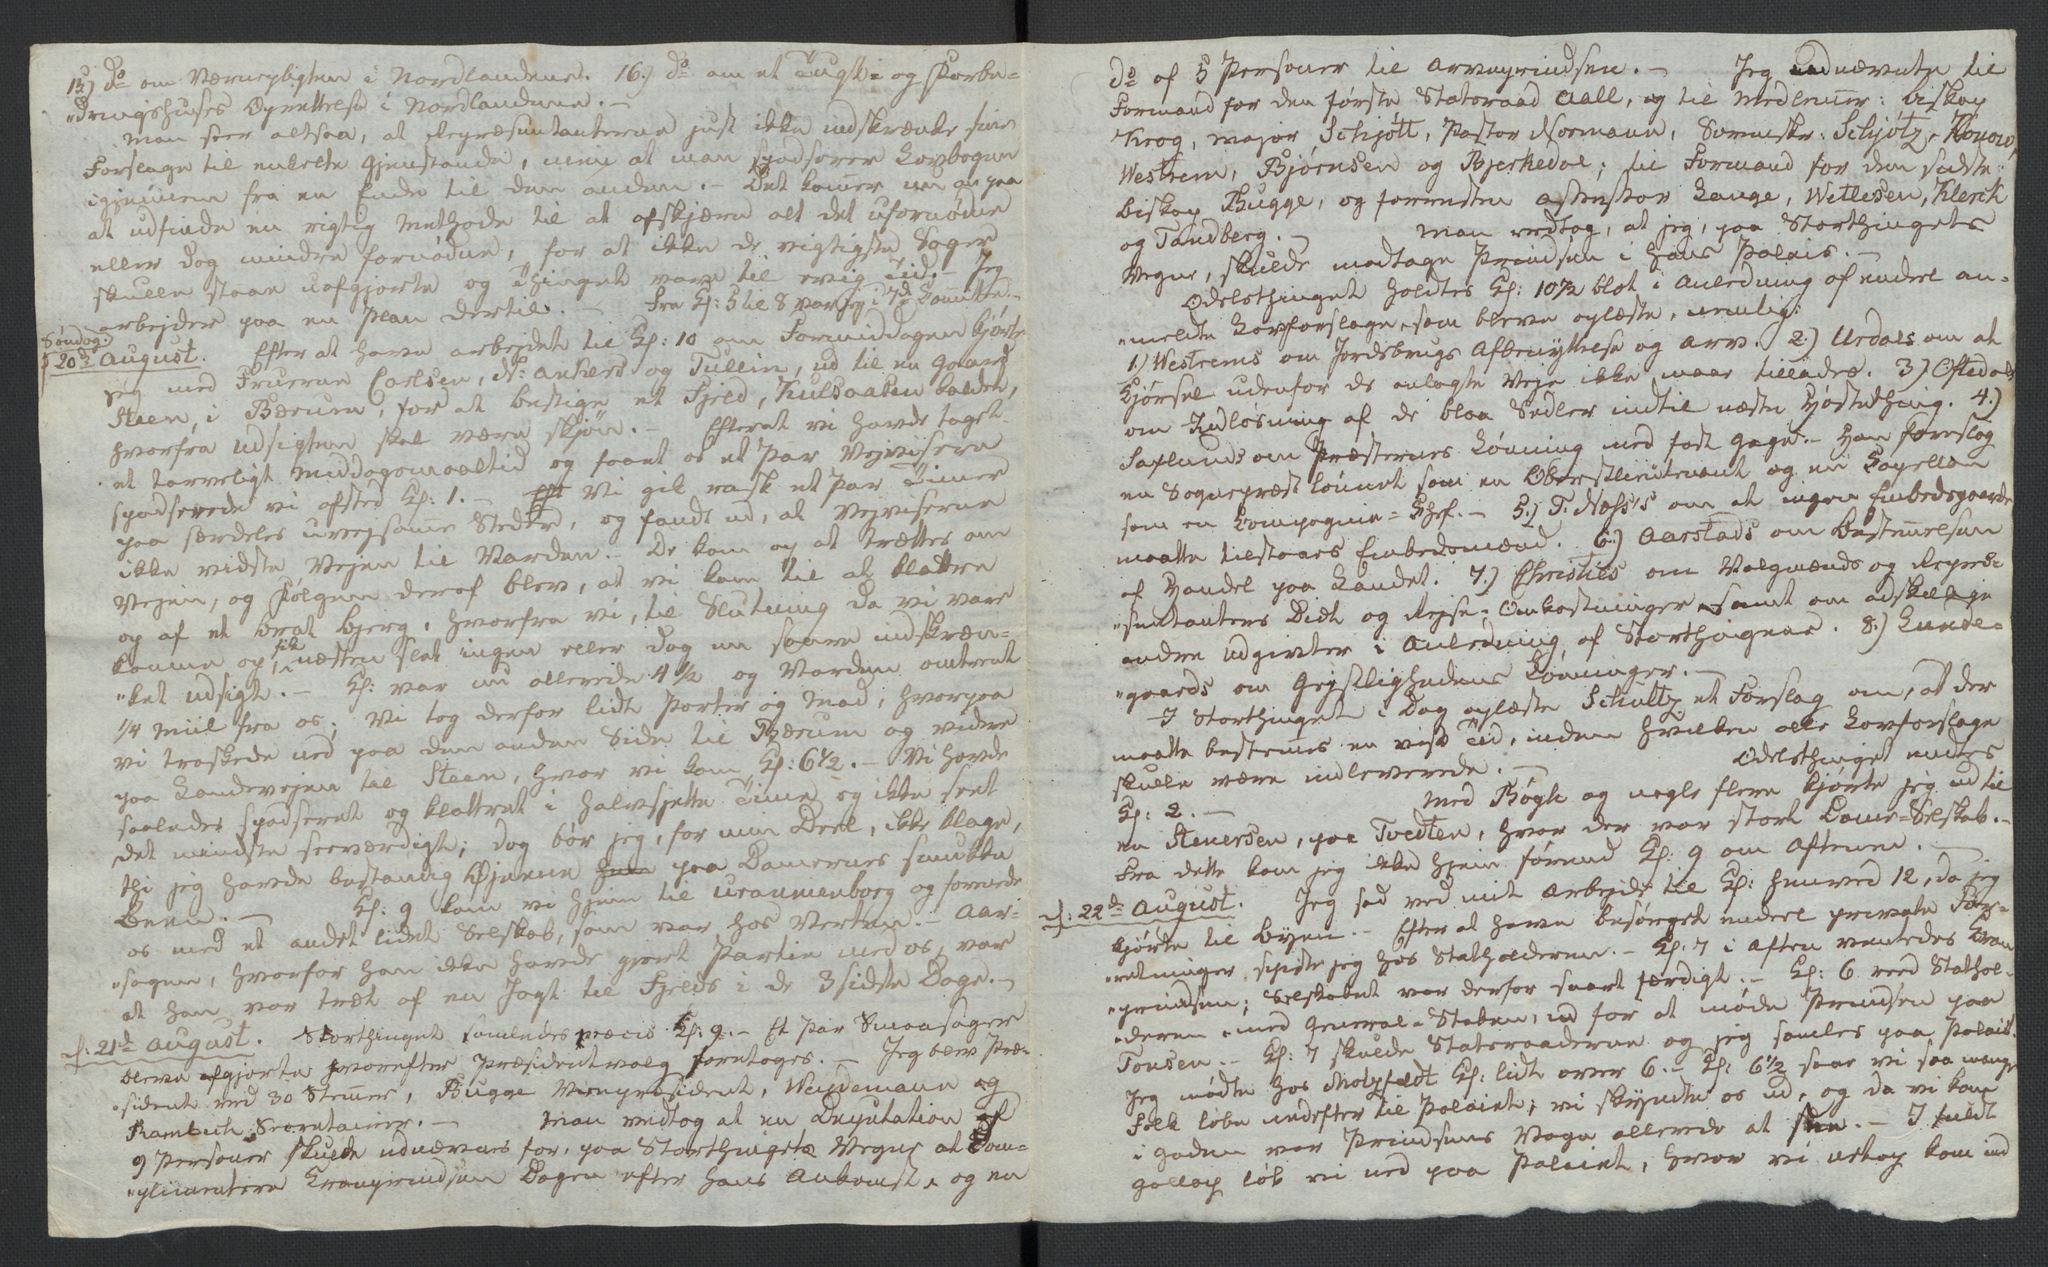 15) do om Værnepligten i Nordlandene. 16.) do om et Tugt- og Forbe-
"dringshuses Oprettelse i Nordlandene. —
Man seer altsaa, at Repræsentanterne just ikke indskrænke sine
Forslage til enkelte Gjenstande, men at man spadserer Lovbogen
igjennem fra en Ende til den anden. — Det kommer nu an paa
at udfinde en rigtig Methode til at afskjære alt det ufornødne
eller dog mindre fornødne, for at ikke de vigtigste Sager
skulle staae uafgjorte og Thinget vare til evig Tid. — Jeg
arbejder paa en Plan dertil. — Fra Kl: 5 til 8 var jeg i 7de Committee. —
Søndag.
20de August. Efter at have arbejdet til Kl: 10 om Formiddagen kjørte
jeg med Fruerne Carlsen, N: Ankers og Tullin, ud til en Gaard
Steen, i Bærum, for at bestige et Fjeld, Kulsaasen kaldet,
hvorfra Udsigten skal være skjøn. — Efterat vi havde taget
et tarveligt Middagsmaaltid og faaet os et Par Vejvisere
spadserede vi afsted Kl: 1. — Vi gik rask et Par Timer
paa særdeles uvejsomme Steder, og fandt ud, at Vejviserne
ikke vidste Vejen til Varden. — De kom op at trættes om
Vejen, og Følgen deraf blev, at vi kom til at klattre
op af et brat Bjerg, hvorfra vi, til Slutning da vi vare
komne op, fik næsten slet ingen eller dog en saare indskræn-
"ket Udsigt. — Kl: var nu allerede 4 1/2 og Varden omtrent
1/4 Miil fra os; Vi tog derfor lidt Porter og Mad, hvorpaa
vi traskede ned paa den anden Side til Bærum og videre
paa Landevejen til Steen, hvor vi kom Kl: 6 1/2. — Vi havde
saaledes spadseret og klattret i halvsjette Time og ikke seet
det mindste seeværdigt; dog bør jeg, for min Deel, ikke klage,
thi jeg havde bestandig Øjnene paa Damernes smukke
Been. — Kl: 9 kom vi hjem til Uranienborg og forenede
os med et andet lidet Selskab, som var hos Verten. — Aar-
"sagen, hvorfor han ikke havde gjort Partie med os, var
at han var træt af en Jagt til Fjelds i de 3 sidste Dage. —
21de August. Storthinget samledes præcis Kl: 9. — Et Par Smaasager
bleve afgjorte hvorefter Præsidentvalg foretoges. — Jeg blev Præ-
"sident med 30 Stemmer, Bugge Vicepræsident, Weidemann og
Rambech Secretairer. — Man vedtog at en Deputation af
9 Personer skulde udnævnes for, paa Storthingets Vegne at Com-
"plimentere Kronprindsen Dagen efter hans Ankomst, og en
do af 5 Personer til Arveprindsen. — Jeg udnævnte til
Formand for den første Statsraad Aall, og til Medlemmer: Biskop
Krog, Major Schjøtt, Pastor Normann, Sorenskr: Schjøtz, Konow,
Westrem, Bjørnsen og Bjerkedal; til Formand for den sidste:
Biskop Bugge, og forresten Assessor Lange, Wetlesen, Klerck
og Tandberg. — Man vedtog, at jeg, paa Storthingets
Vegne, skulde modtage Prindsen i hans Palais. —
Odelsthinget holdtes Kl: 10 1/2 blot i Anledning af endeel an-
"meldte Lovforslage, som bleve oplæste, nemlig:
1) Westrems om Jordsbrugs Afbenyttelse og Arv. 2.) Urdals om at
Kjørsel udenfor de anlagte Veje ikke maae tillades. 3.) Oftedals
om Indløsning af de blaa Sedler indtil næste Høstething. 4.)
Saxlunds om Præsternes Lønning med fast Gage. — Han foreslog
en Sognepræst lønnet som en Oberstlieutenant og en Capellan
som en Compagnie-Chef. — 5.) T. Næss's om at ingen Embedsgaarde
maatte tilstaaes Embedsmænd. 6.) Aarstads om Bestemmelsen
af Handel paa Landet. 7.) Christies om Valgmænds og Repræ-
"sentanters Diæt og Rejse-Omkostninger samt om adskillige
andre Udgivter i Anledning af Storthingene. 8.) Lunde-
"gaards om Gejstlighedens Lønninger. —
I Storthinget i Dag oplæste Schultz et Forslag om, at der
maatte bestemmes en vis Tid, inden hvilken alle Lovforslage
skulle være indleverede. — Odelsthinget endtes
Kl: 2. — Med Bøgh og nogle flere kjørte jeg ud til
en Stenersen, paa Tvedten, hvor der var stort Dame-Selskab. —
Fra dette kom jeg ikke hjem førend Kl: 9 om Aftenen. —
22de August. Jeg sad ved mit Arbejde til Kl: henved 12, da jeg
kjørte til Byen. — Efter at have besørget endeel private For-
"retninger spiste jeg hos Statholderen. — Kl: 7 i Aften ventedes Kron-
"prindsen; Selskabet var derfor snart færdigt. — Kl: 6 reed Stathol-
"deren med General-Staben, ud for at møde Prindsen paa
Tonsen. — Kl: 7 skulde Statsraaderne og jeg samles paa Palaiet.
Jeg mødte hos Motzfeldt Kl: lidt over 6. — Kl: 6 1/2 saae vi saa mange
Folk løbe nedefter til Palaiet; vi skyndte os ud, og da vi kom
i Gaden var Prindsens Vogn allerede at see. — I fuldt
Gallop løb vi ned paa Palaiet, hvor vi netop kom ind